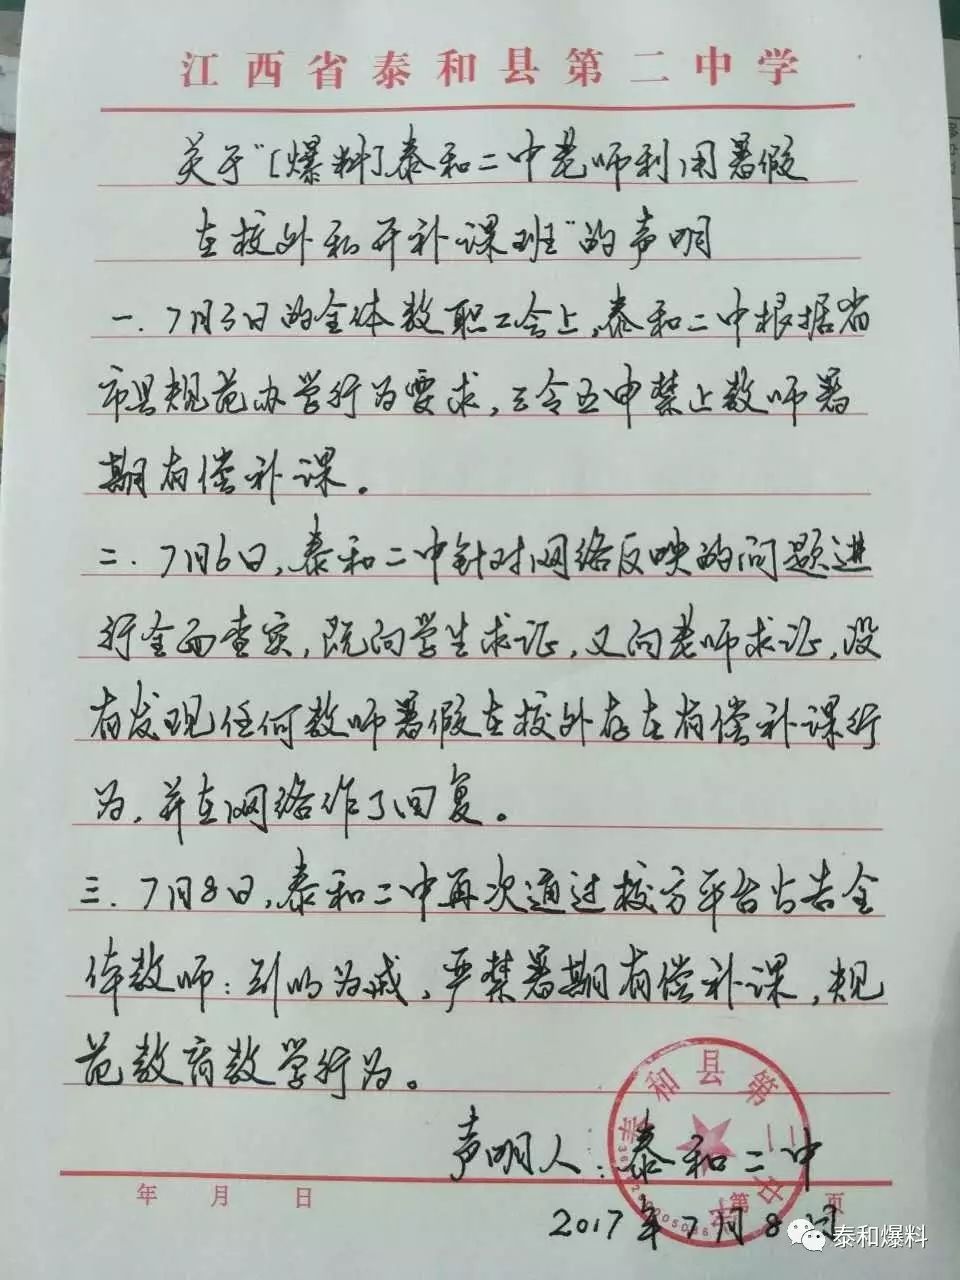 江西省泰和县第二中学
关于"[爆料]泰和二中老师利用暑假
在校外私开补课班"的声明
一.7月3日的全体教职工会上,泰和二中根据省
市县规范办学行为要求,三令五申禁止教师暑
期有偿补课。
二.7月6日,泰和二中针对网络反映的问题进
行全面查实,既向学生求证,又向老师求证,没
有发现任何教师暑假在校外存在有偿补课行
为,并在网络作了回复。
三.7月8日,泰和二中再次通过校方平台告全
体教师:引以为戒,严禁暑期有偿补课,规
范教育教学行为。
声明人:泰和二中
泰和县第二中学
年 月 日 第 页
2017年7月8日
泰和爆料